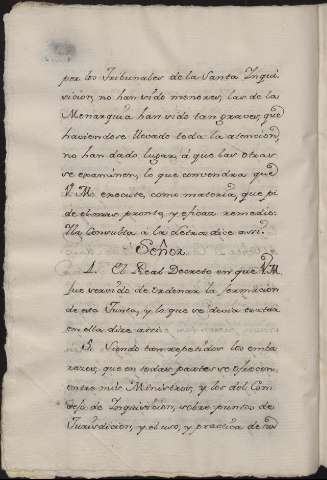 por los Tribunales de la Santa Inqui-
sicion, no han sido menores, las de la
Monarquia han sido tan graves, que
haviendose llevado toda la atencion,
no han dado lugar, á que las otras
se examinen, lo que convendra que
V. M. execute, como materia, que pi-
de el mas pronto, y eficaz remedio.
La Consulta a la letra dice assi.
Señor
1. El Real Decreto en que V. M.
fue servido de ordenar la formacion
de esta Junta, y lo que se devia tratar
en ella dice assi:
2. Siendo tan repetidos los emba-
razos, que en todas partes se ofrecen,
entre mis Ministros, y los del Con-
sejo de Inquisicion, sobre puntos de
Jurisdicion, y el uso, y practica de sus